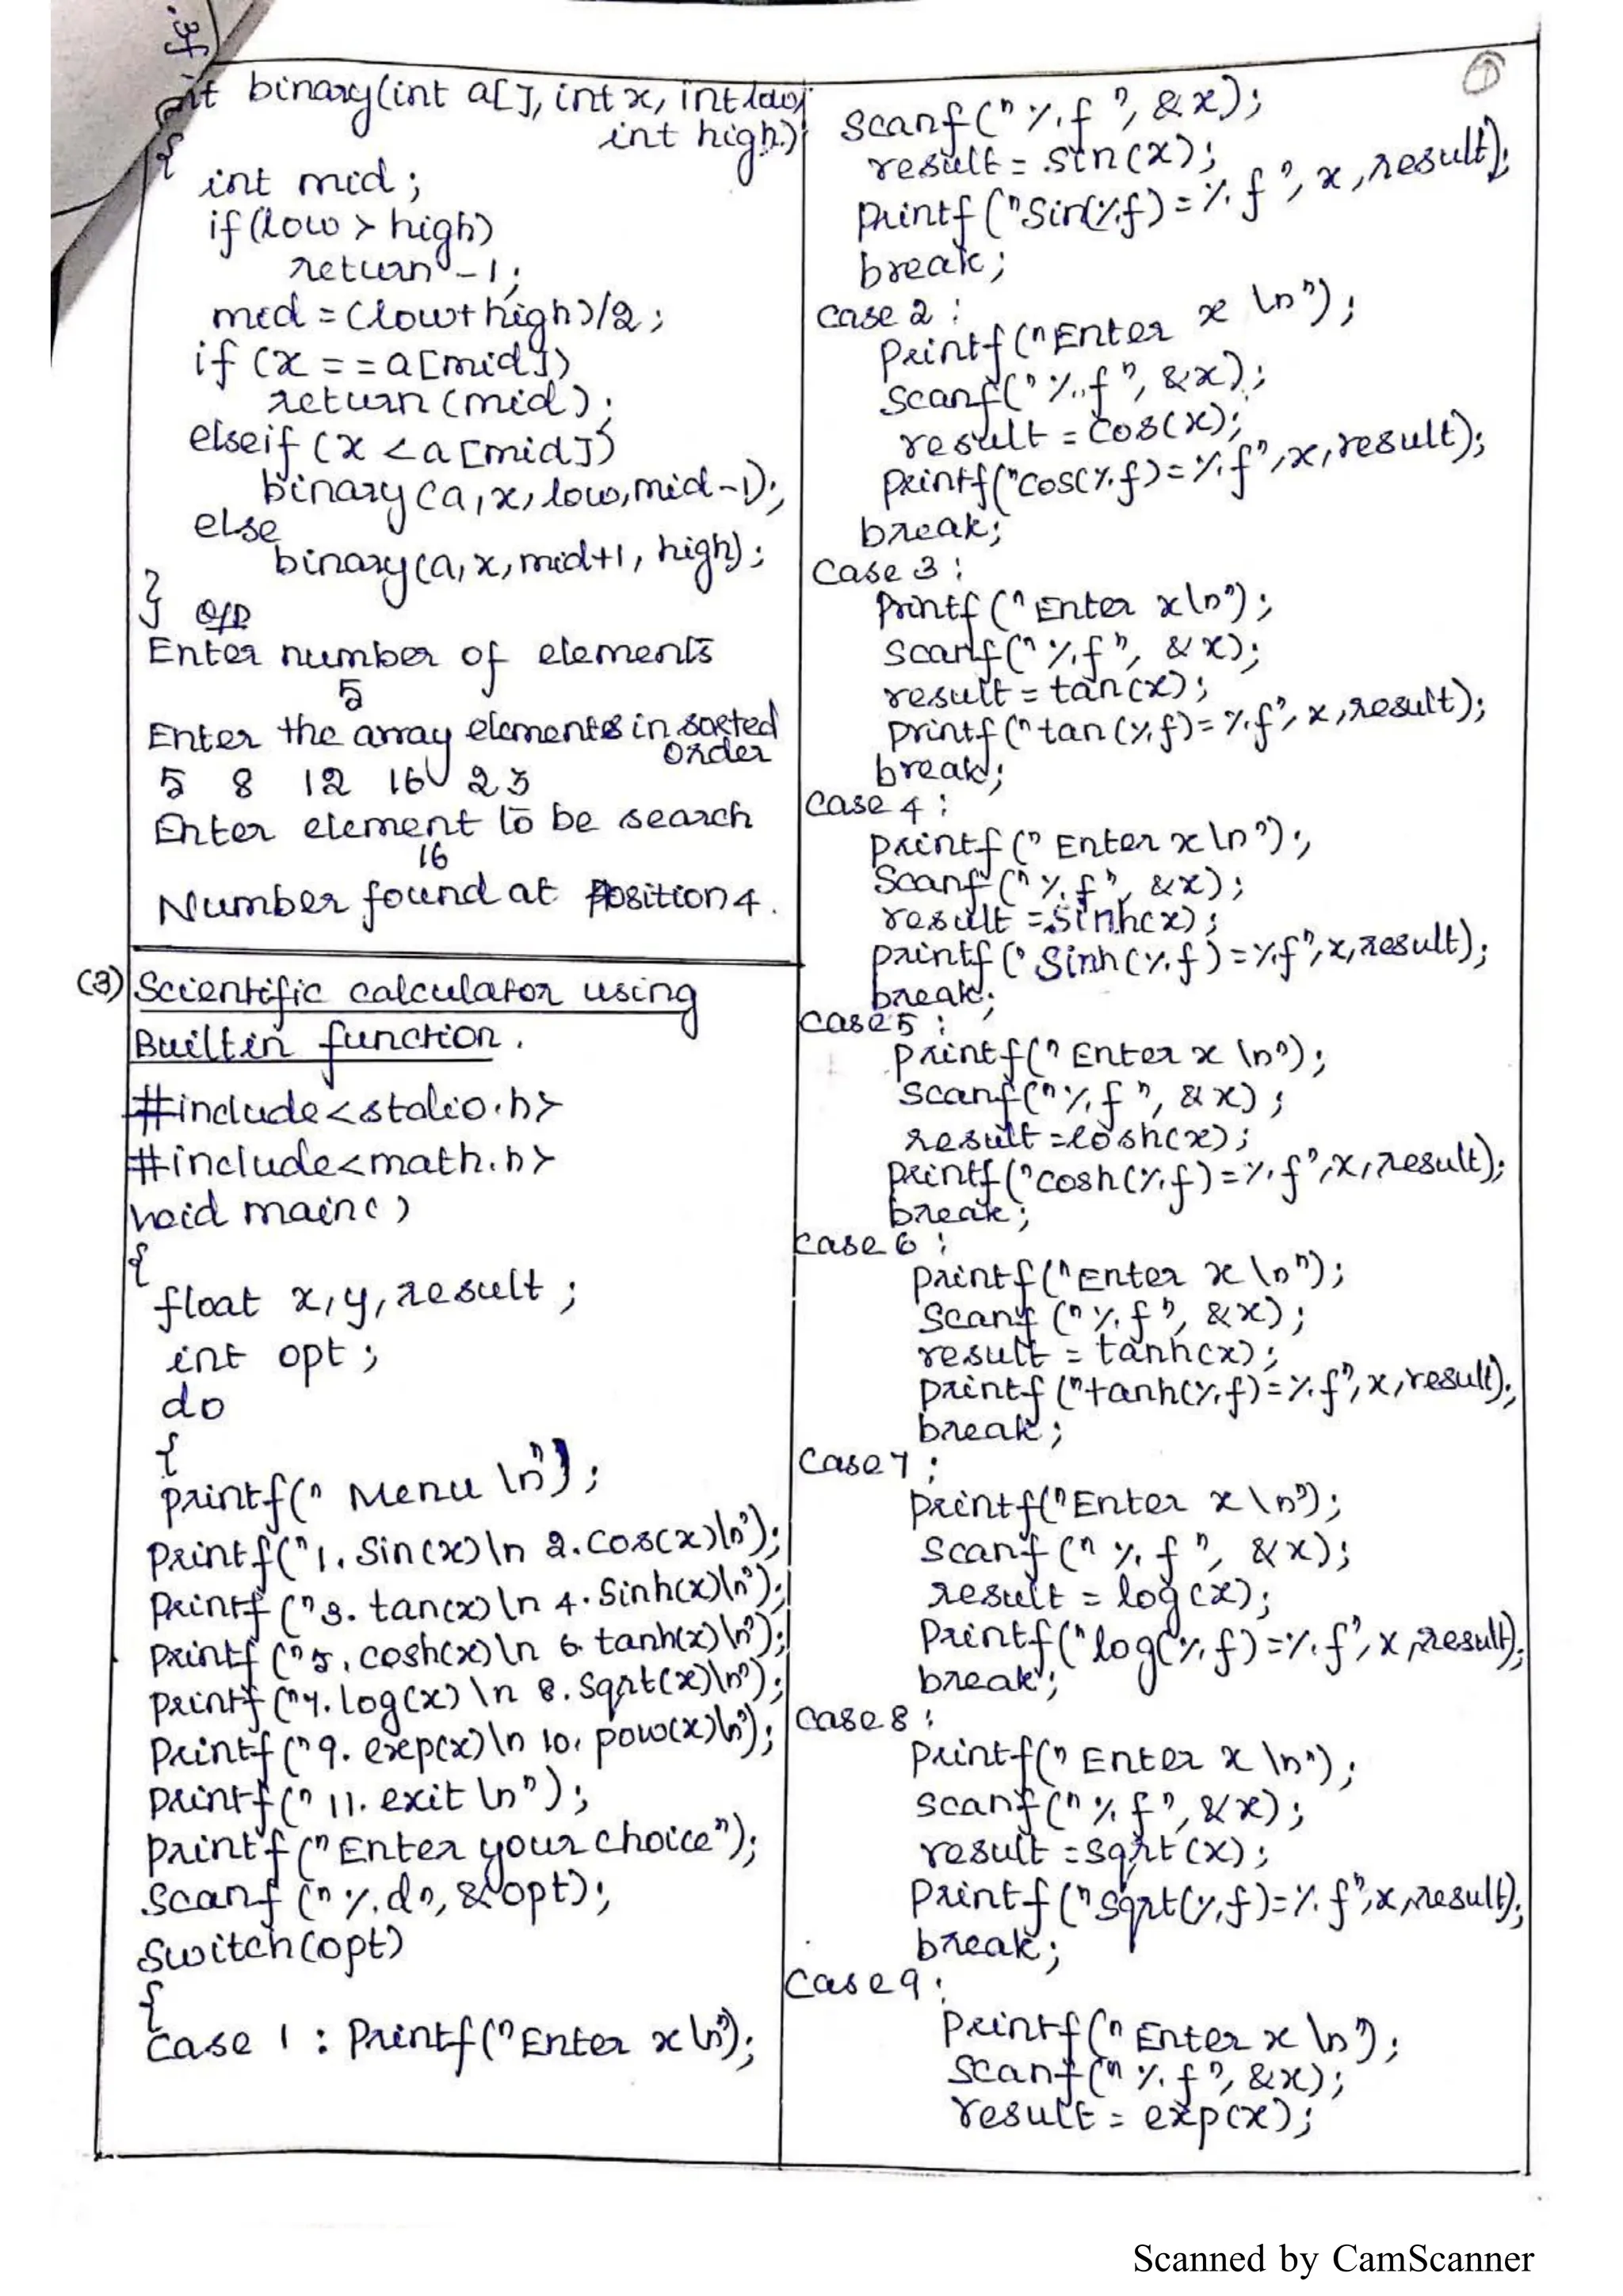 .3f
int binary(int a[], int x, int low,
int high)
{
int mid;
if(low > high)
return -1;
mid = (low+high)/2;
if (x == a[mid])
return (mid);
elseif (x < a[mid])
binary(a, x, low, mid-1);
else
binary(a, x, mid+1, high);
}
O/P
Enter number of elements
5
Enter the array elements in sorted
order
5 8 12 16 23
Enter element to be search
16
Number found at Position 4.
(3) Scientific calculator using
Builtin function.
#include<stdio.h>
#include<math.h>
void main()
{
float x, y, result;
int opt;
do
{
printf(" Menu \n");
printf("1. Sin(x)\n 2. Cos(x)\n");
printf("3. tan(x)\n 4. Sinh(x)\n");
printf("5. cosh(x)\n 6. tanh(x)\n");
printf("7. log(x)\n 8. Sqrt(x)\n");
printf("9. exp(x)\n 10. pow(x)\n");
printf("11. exit\n");
printf("Enter your choice");
Scanf("%d", &opt);
Switch(opt)
{
Case 1 : Printf("Enter x\n");
①
scanf("%f", &x);
result = sin(x);
printf("Sin(%f) = %f", x, result);
break;
case 2 :
Printf("Enter x \n");
scanf("%f", &x);
result = cos(x);
printf("cos(%f) = %f", x, result);
break;
Case 3 :
Printf("Enter x\n");
Scanf("%f", &x);
result = tan(x);
printf("tan(%f) = %f", x, result);
break;
Case 4 :
printf("Enter x\n");
Scanf("%f", &x);
result = sinh(x);
printf("Sinh(%f) = %f", x, result);
break;
Case 5 :
printf("Enter x \n");
Scanf("%f", &x);
result = cosh(x);
printf("cosh(%f) = %f", x, result);
break;
Case 6 :
printf("Enter x \n");
Scanf("%f", &x);
result = tanh(x);
printf("tanh(%f) = %f", x, result);
break;
Case 7 :
printf("Enter x \n");
Scanf("%f", &x);
result = log(x);
Printf("log(%f) = %f", x, result);
break;
Case 8 :
printf("Enter x \n");
scanf("%f", &x);
result = sqrt(x);
printf("sqrt(%f) = %f", x, result);
break;
Case 9 :
Printf("Enter x \n");
scanf("%f", &x);
result = exp(x);
Scanned by CamScanner